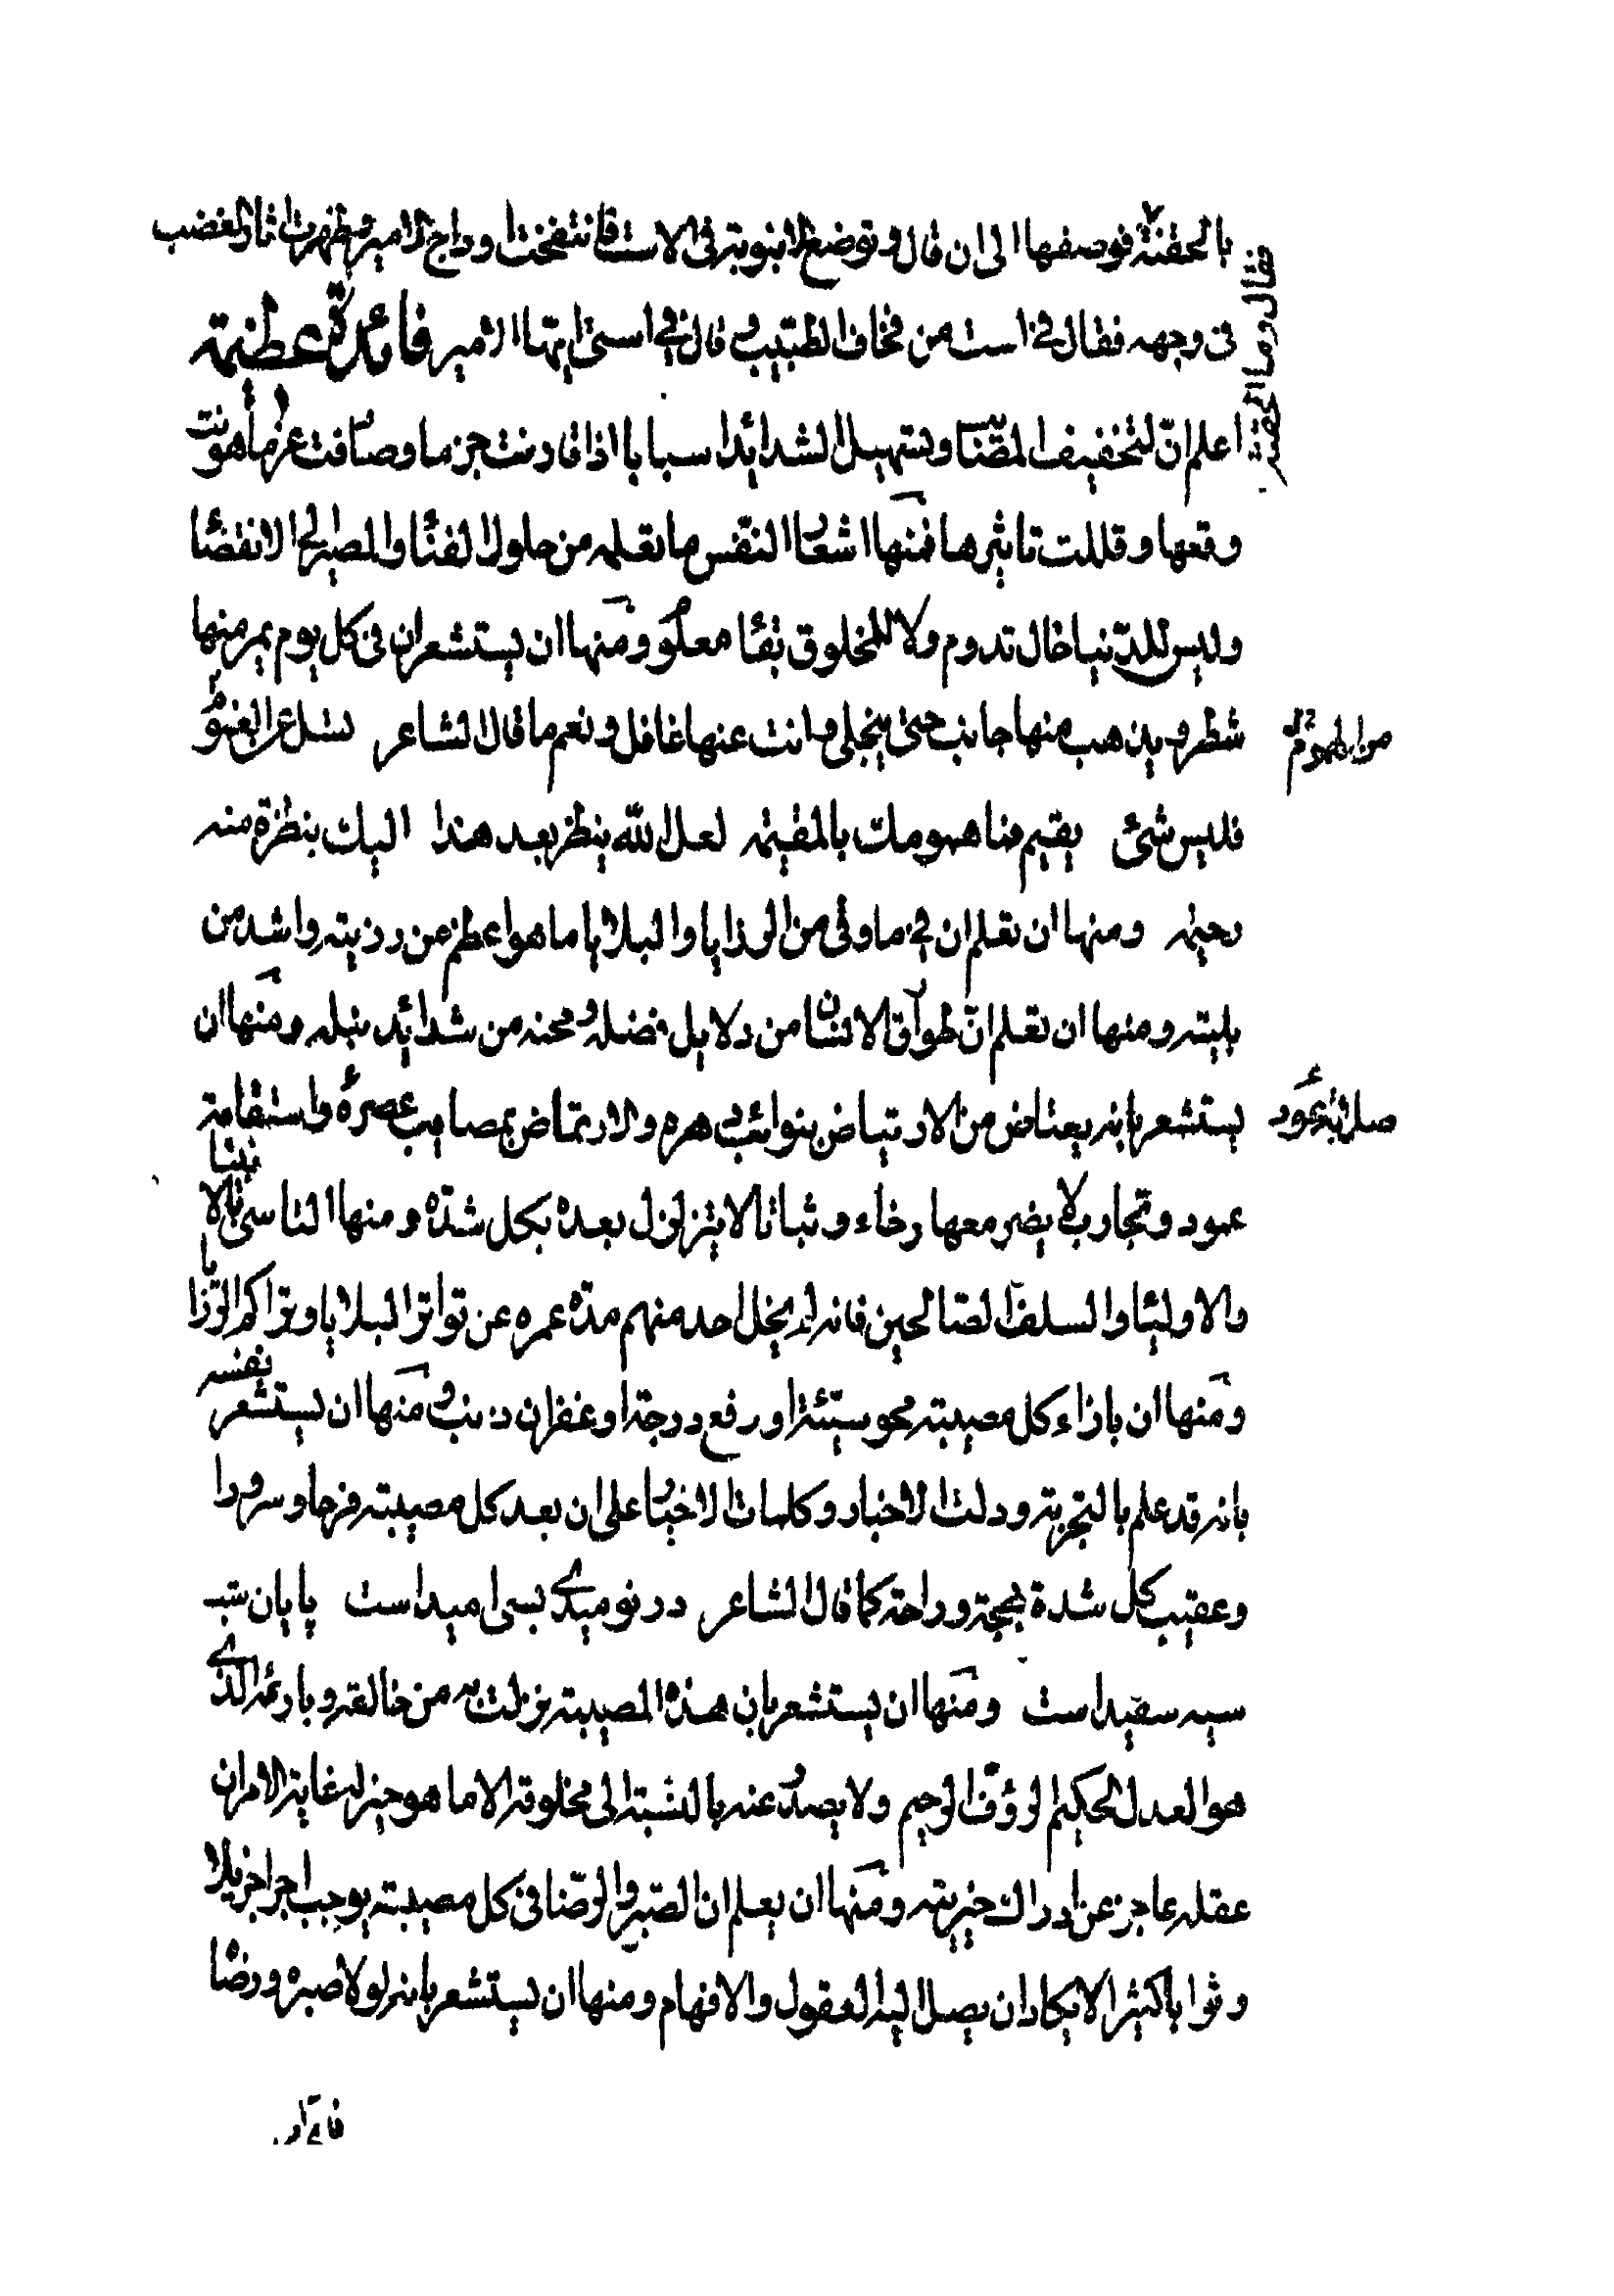 بالحقنة فوصفها الى ان قال و توضع الانبوبة فى الاست فانتفخت اوداج الامير و ظهرت اثار الغضب
فقال و ما الحقنة
فى وجهه فقال فى است من فخاف الطبيب و قال فى استى ايها الامير فائدة عظيمة
اعلم انّ لتخفيف المصائب و تسهيل الشدائد اسبابا اذا قارنت حزما و صادفت عزما هونت
وقعها و قللت تاثيرها فمنها اشعار النفس ما تعلمه من حلول الفناء و المصير الى الانقضاء
و ليس للدّنيا حال تدوم و لا للمخلوق بقاء معلوم و منها ان يستشعر ان فى كل يوم يمر منها
شطر و يذهب منها جانب حتى ينجلى و انت عنها غافل و نعم ما قال الشاعر تسل عن الهموم
من الهموم
فليس شئ يقيم فما همومك بالمقيمه لعل الله ينظر بعد هذا اليك بنظرة منه
رحيمه و منها ان تعلم ان فى ما وقى من الرزايا و البلايا ما هو اعظم من رزيته و اشد من
بليته و منها ان تعلم انّ طوارق الانسان من دلايل فضله و محنه من شدائد نبله و منها ان
يستشعر بانه يعتاض من الارتياض بنوائب دهره و الارتماض بمصايب عصره و استقامة
صلابة عود
عمود و تجارب لا يضر معها رخاء و ثباتا لا يتزلزل بعده بكل شدّه و منها التاسى بالانبياء
و الاولياء و السلف الصالحين فانه لم يخل احد منهم مدّه عمره عن تواتر البلايا و تراكم الرزايا
و منها ان بازاء كل مصيبته محو سيّئة او رفع درجة او غفران ذنب و منها ان يستشعر نفسه
بانه قد علم بالتجربة و دلت الاخبار و كلمات الاخيار على ان بعد كل مصيبته فرحا و سرورا
و عقيب كل شدة بهجة و راحة كما قال الشاعر در نوميدى بسى اميد است پايان شب
سيه سفيد است و منها ان يستشعر بان هذه المصيبته نزلت به من خالقه و بارئه الذى
هو العدل الحكيم الرؤف الرحيم و لا يصدر عنه بالنسبة الى مخلوقه الا ما هو خير له غاية الامر ان
عقله عاجز عن ادراك خيريته و منها ان يعلم ان الصبر و الرضا فى كل مصيبته يوجب اجرا جزيلا
و ثوابا كثيرا لا يكاد ان يصل اليه العقول و الافهام و منها ان يستشعر بانه لو لا صبره و رضاه